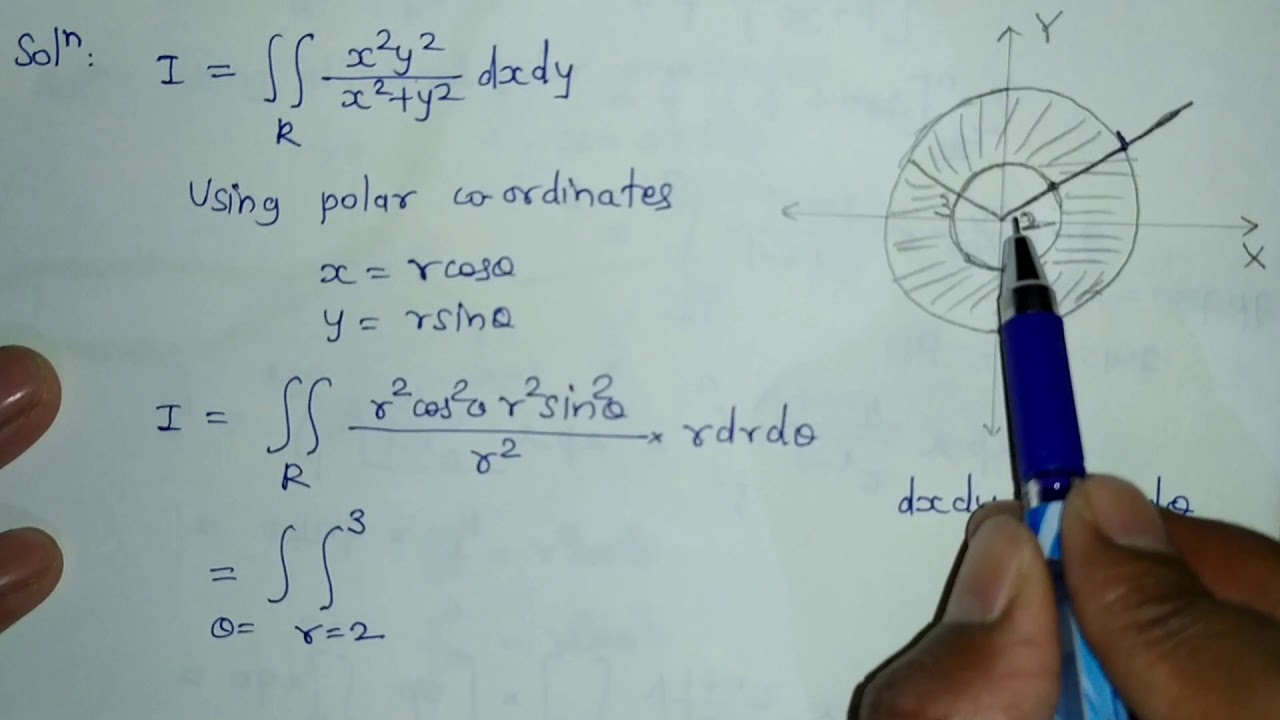 Solⁿ: I = ∬_R x²y² / x²+y² dxdy
Using polar co-ordinates
x = rcosθ
y = rsinθ
I = ∬_R r²cos²θ r²sin²θ / r² × rdrdθ
= ∫_θ= ∫_r=2^3
Y
3
2
X
dxdy
dθ